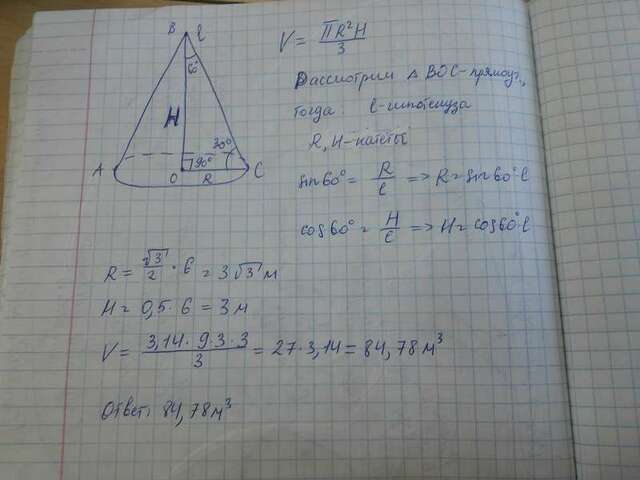 B l
60°
H
30°
90°
A O R C
V = ПR²H / 3
Рассмотрим △ BOC - прямоуг.,
тогда: l - гипотенуза
R, H - катеты
sin 60° = R / l => R = sin 60° · l
cos 60° = H / l => H = cos 60° · l
R = √3 / 2 · 6 = 3√3 м
H = 0,5 · 6 = 3 м
V = 3,14 · 9 · 3 · 3 / 3 = 27 · 3,14 = 84,78 м³
Ответ: 84,78 м³